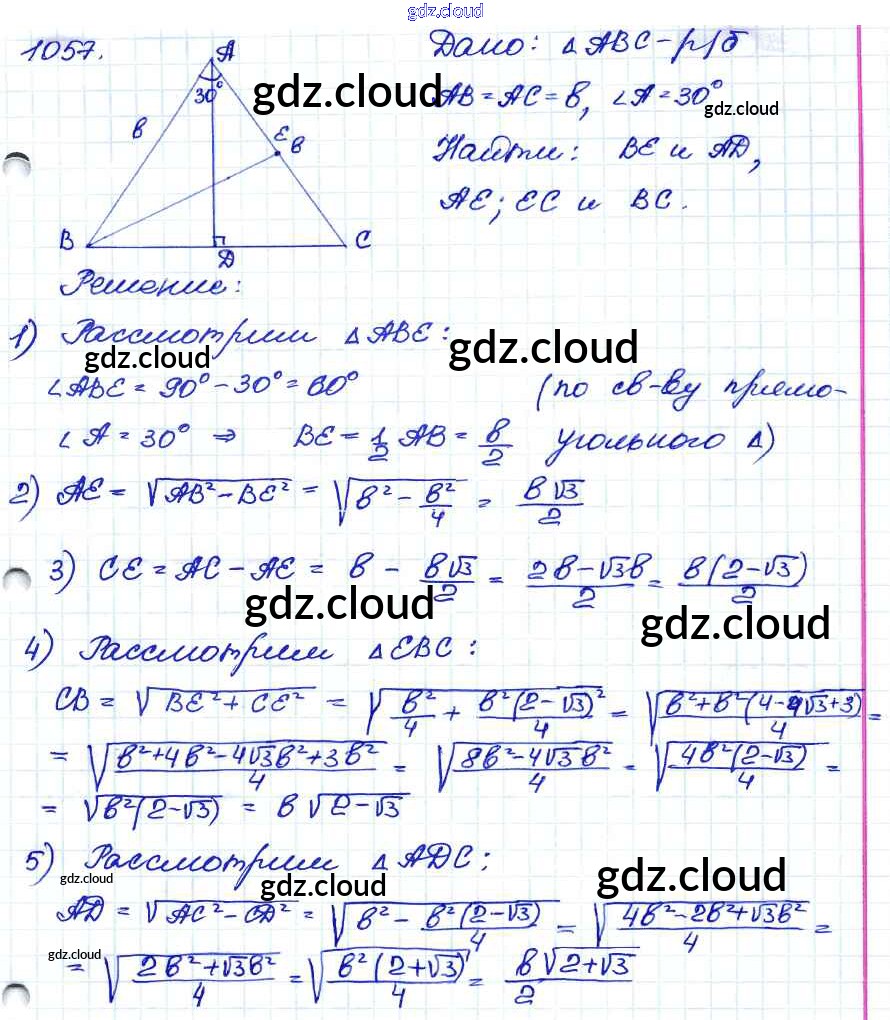 gdz.cloud
1057.
A
30°
в
Е в
В
D
С
Дано: △ABC - р/б
AB = AC = в, ∠A = 30°
Найти: BE и AD,
AE; EC и BC.
gdz.cloud
gdz.cloud
Решение:
1) Рассмотрим △ABE:
gdz.cloud
gdz.cloud
∠ABE = 90° - 30° = 60° (по св-ву прямо-
∠A = 30° ⇒ BE = 1/2 AB = в/2 угольного △)
2) AE = √(AB² - BE²) = √(в² - в²/4) = в√3/2
3) CE = AC - AE = в - в√3/2 = (2в - √3в)/2 = в(2 - √3)/2
gdz.cloud
gdz.cloud
4) Рассмотрим △EBC:
CB = √(BE² + CE²) = √(в²/4 + в²(2 - √3)²/4) = √((в² + в²(4 - 4√3 + 3))/4) =
= √((в² + 4в² - 4√3в² + 3в²)/4) = √((8в² - 4√3в²)/4) = √(4в²(2 - √3)/4) =
= √(в²(2 - √3)) = в√(2 - √3)
5) Рассмотрим △ADC;
gdz.cloud
gdz.cloud
gdz.cloud
AD = √(AC² - CD²) = √(в² - в²(2 - √3)/4) = √((4в² - 2в² + √3в²)/4) =
gdz.cloud
= √((2в² + √3в²)/4) = √(в²(2 + √3)/4) = в√(2 + √3)/2